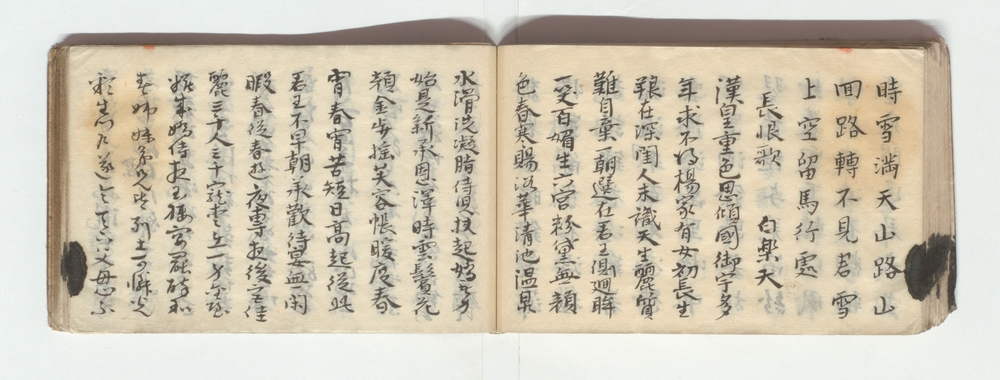 時雪満天山路山
回路轉不見君雪
上空留馬行處
長恨歌 白楽天
漢皇重色思傾國御宇多
年求不得楊家有女初長生
在深閨人未識天生麗質
難自棄一朝選在君王側廻眸
一笑百媚生六宮粉黛無顔
色春寒賜浴華清池温泉
水滑洗凝脂侍児扶起嬌無力
始是新承恩澤時雲鬢花
顔金歩揺芙蓉帳暖度春
宵春宵苦短日高起從此
君王不早朝承歡侍宴無閑
暇春從春遊夜專夜後宮佳
麗三千人三千寵愛在一身金屋
粧成嬌侍夜玉樓宴罷酔和
春姉妹弟兄皆列土可憐光
彩生門戸遂令天下父母心不